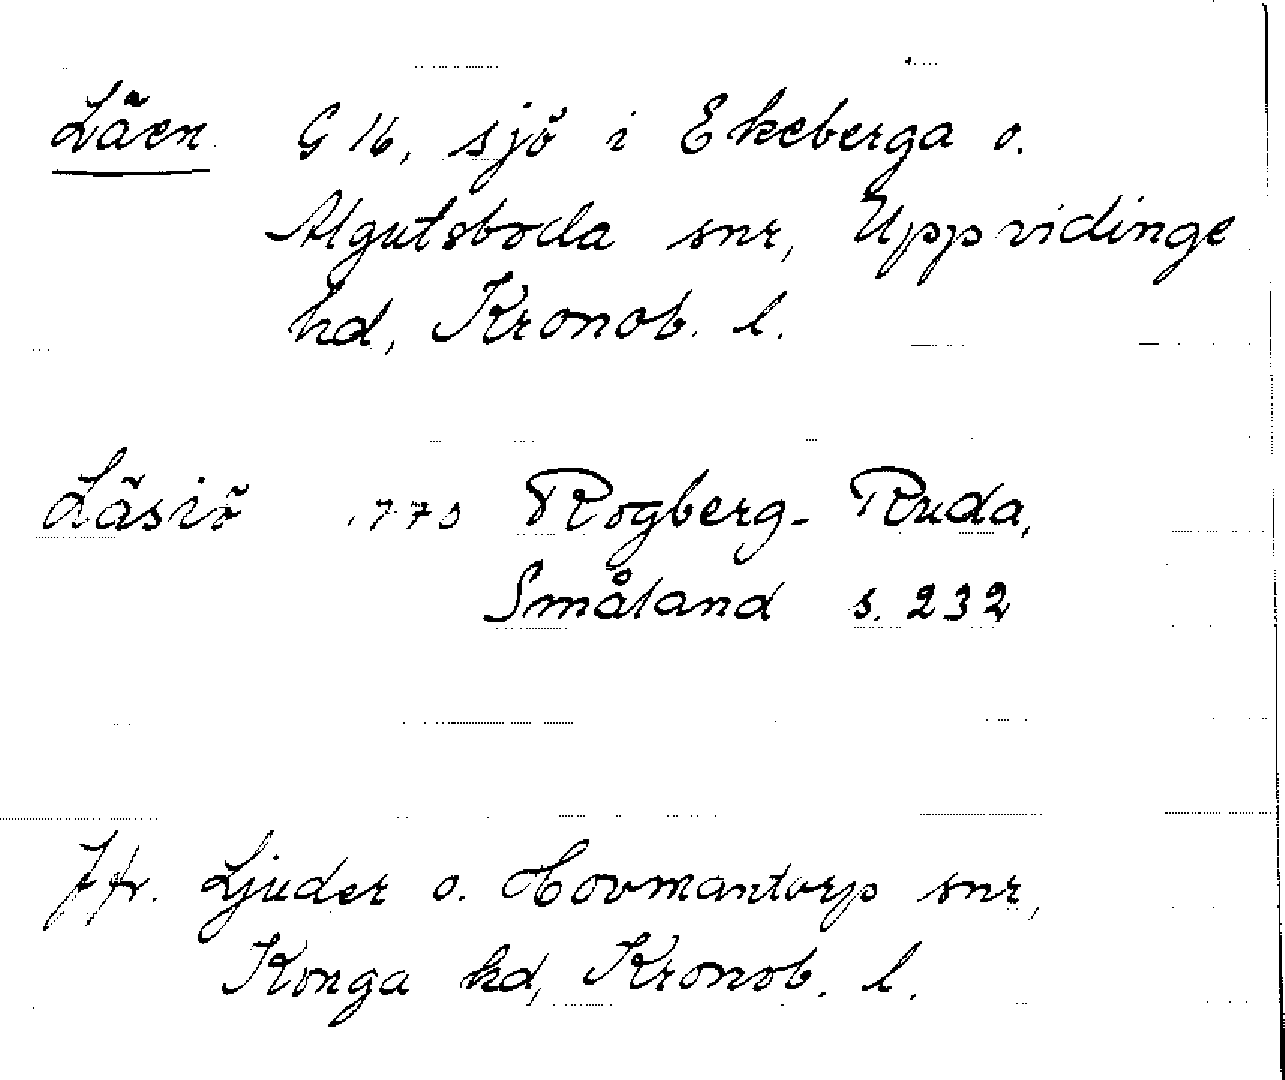 Läen. G 16, sjö i Ekeberga o.
Algutsboda snr, Uppvidinge
hd, Kronob. l.
Läsiö 1770 Rogberg-Ruda,
Småland s. 232
Jfr. Ljuder o. Hovmantorp snr,
Konga hd, Kronob. l.